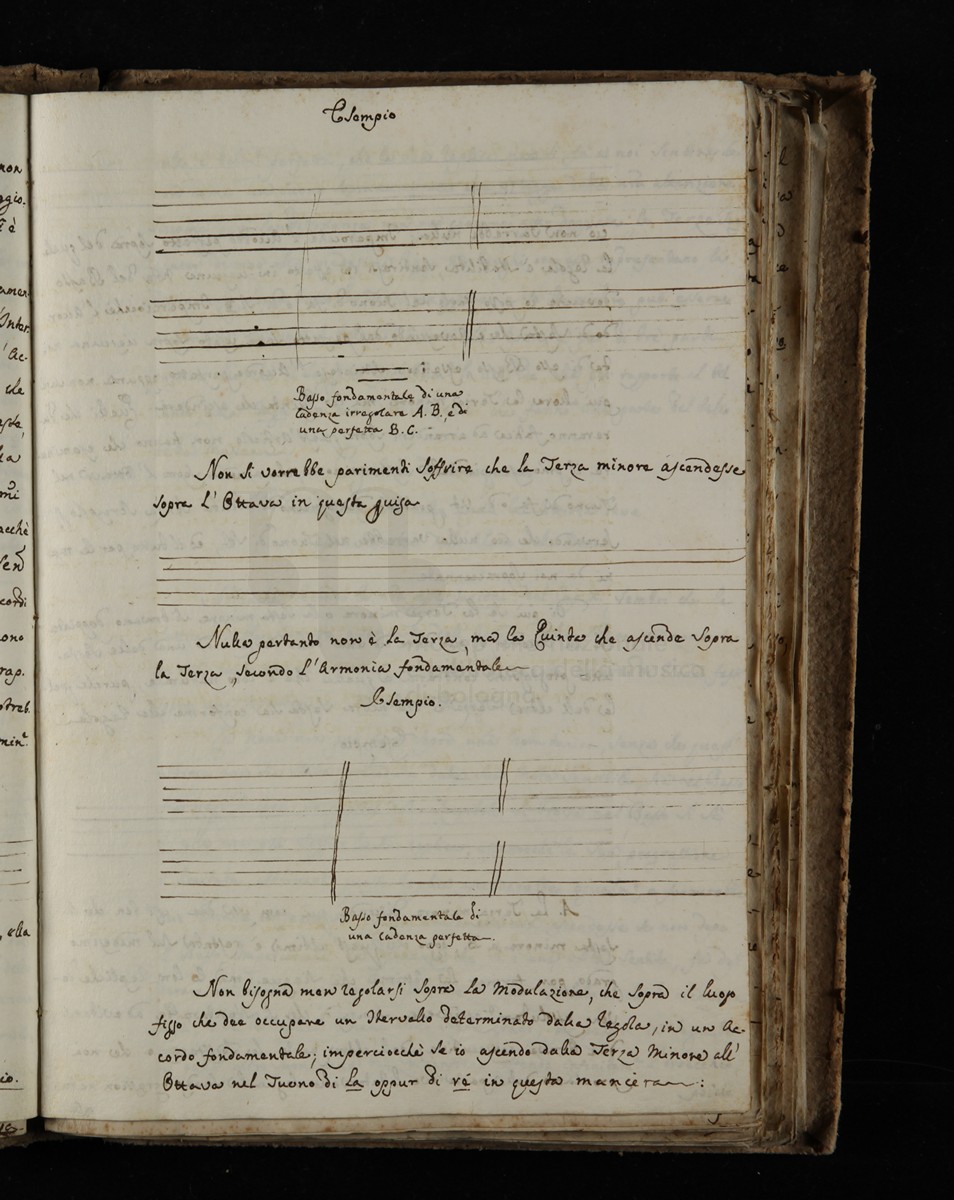 Esempio
Basso fondamentale di una
Cadenza irregolare A. B., e di
una perfetta B. C.
Non si vorrebbe parimenti soffrire che la Terza minore ascendesse
sopra l'Ottava in questa guisa
Nulla pertanto non è la Terza, ma la Quinta che ascende sopra
la Terza, secondo l'Armonia fondamentale
Esempio.
Basso fondamentale di
una Cadenza perfetta.
Non bisogna men regolarsi sopra la Modulazione, che sopra il luogo
fisso che dee occupare un Itervallo determinato dalla Regola, in un Ac-
cordo fondamentale; imperciocchè se io ascendo dalla Terza Minore all'
Ottava nel Tuono di la oppur di rè in questa maniera:
non
ggio.
Inter.
Ac-
che
mi
cordi
ono
rap.
min.
della musica
bologna